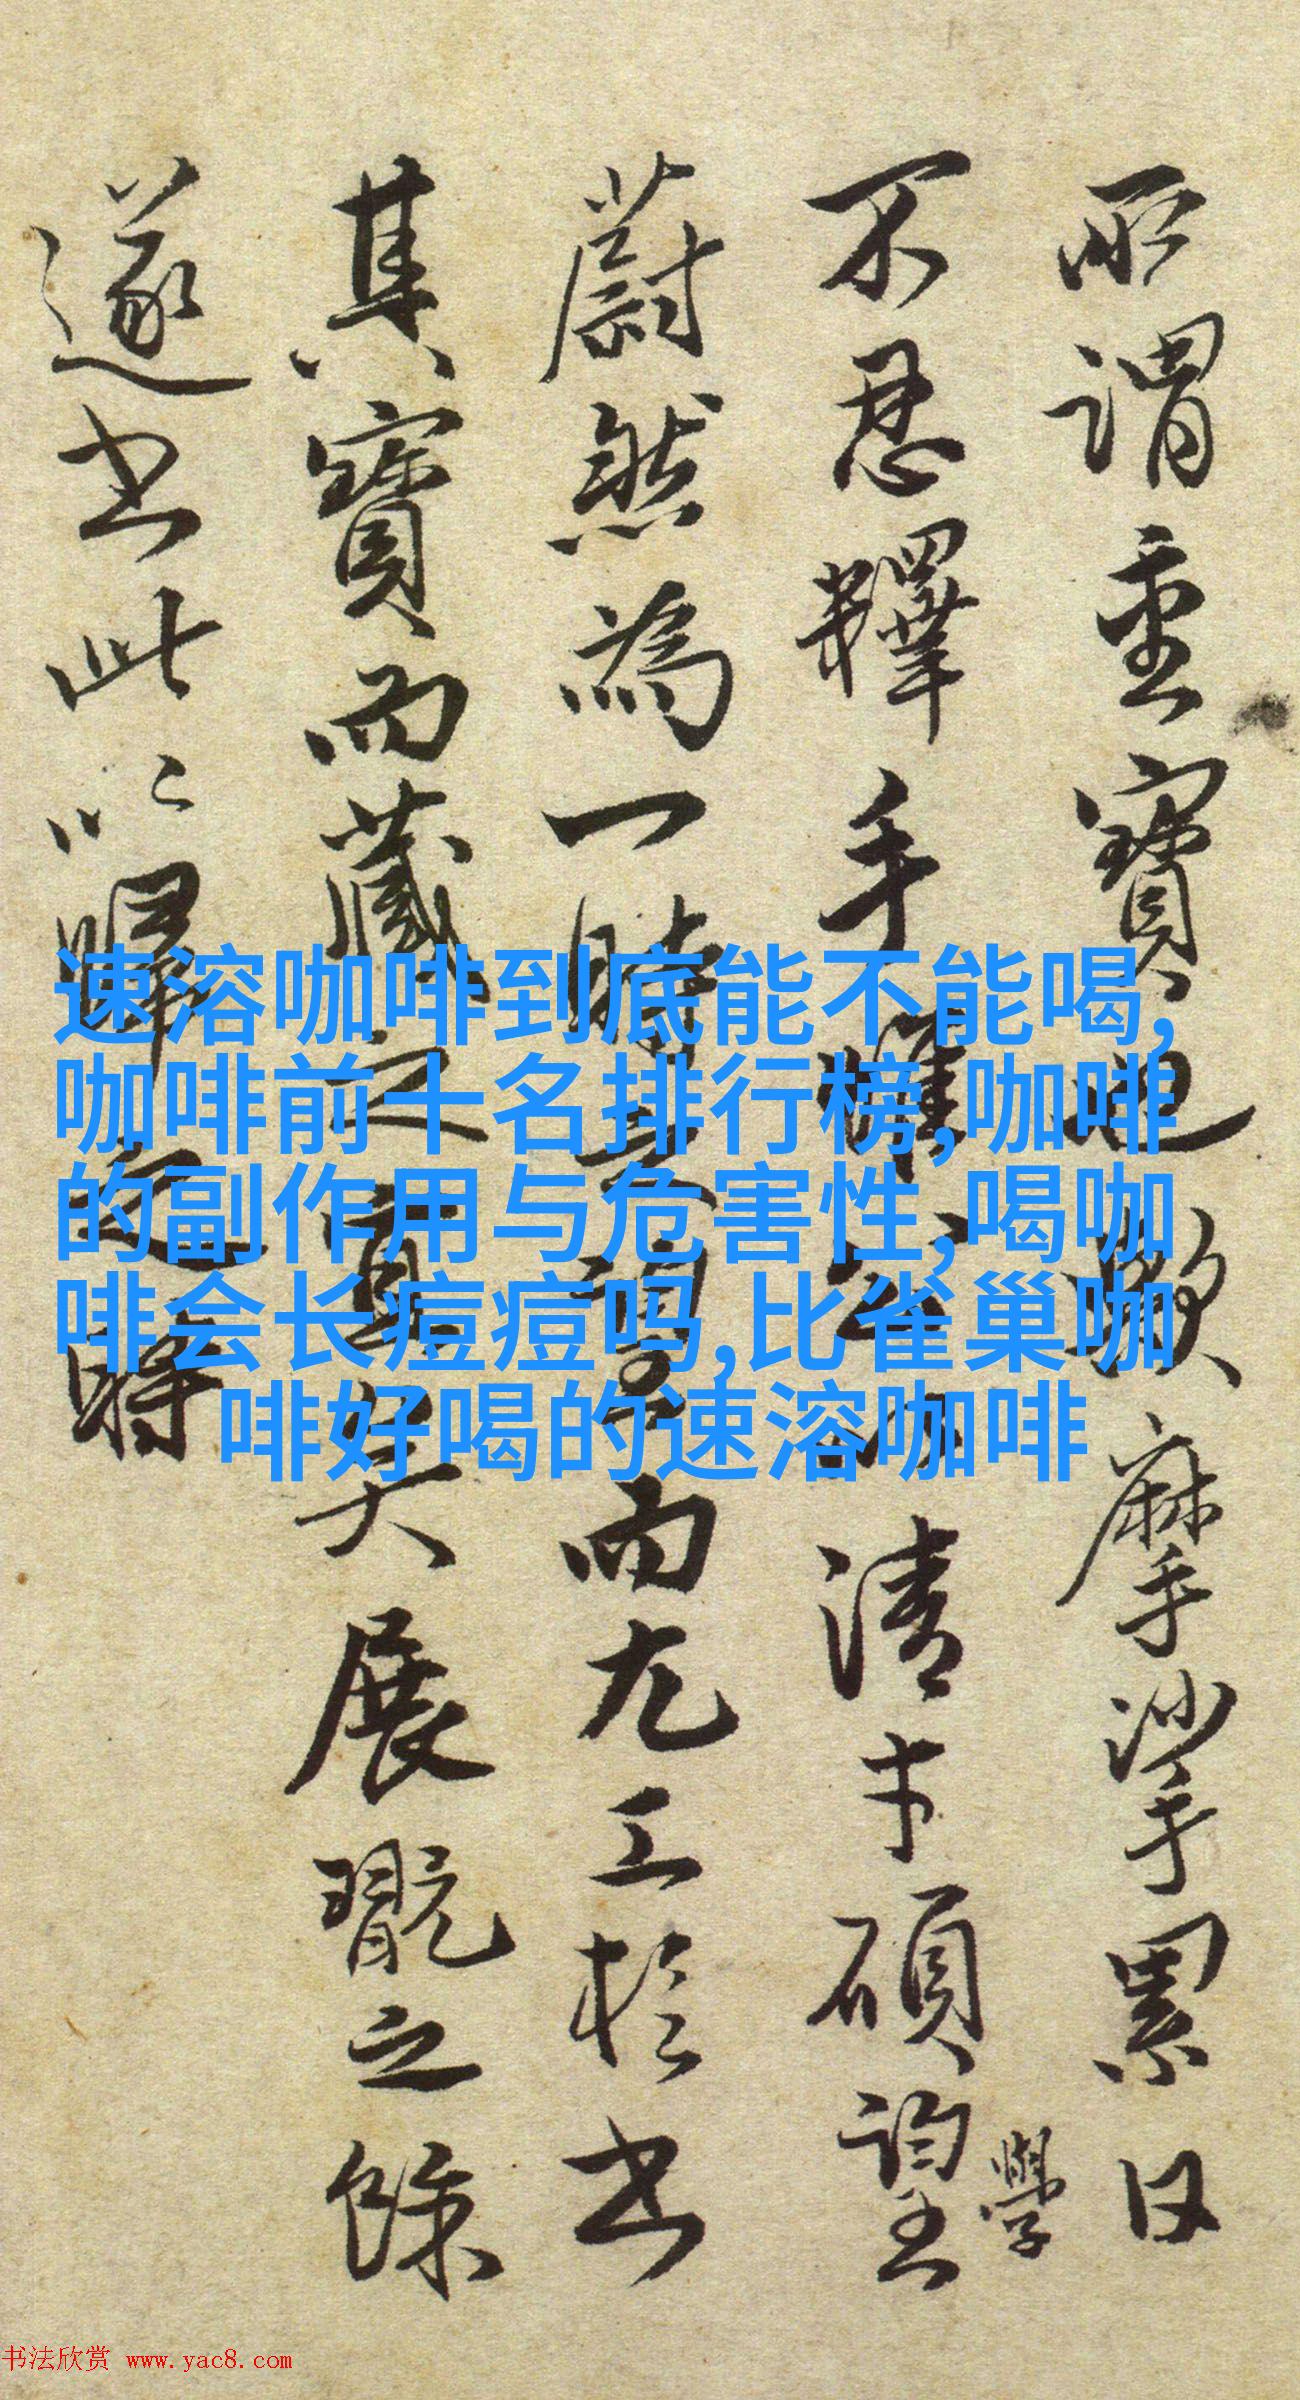 所謂重寶也歟摩挲累日
不忍釋手惟公以清才碩望
學
蔚然為一時之謂而尤工於書
其寶而藏之宜矣展翫之餘
遂書此以歸之時
速溶咖啡到底能不能喝,
咖啡前十名排行榜,咖啡
的副作用与危害性,喝咖
啡会长痘痘吗,比雀巢咖
啡好喝的速溶咖啡
书法欣赏 www.yac8.com